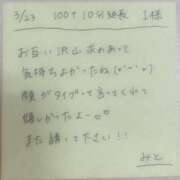 3/23 100分+10分延長 I様
お互い沢山求めあって
気持ちよかったね(˶ˊᵕˋ˵)
顔がタイプって言ってくれて
嬉しかったよ〜♡
また誘ってください!!
みと